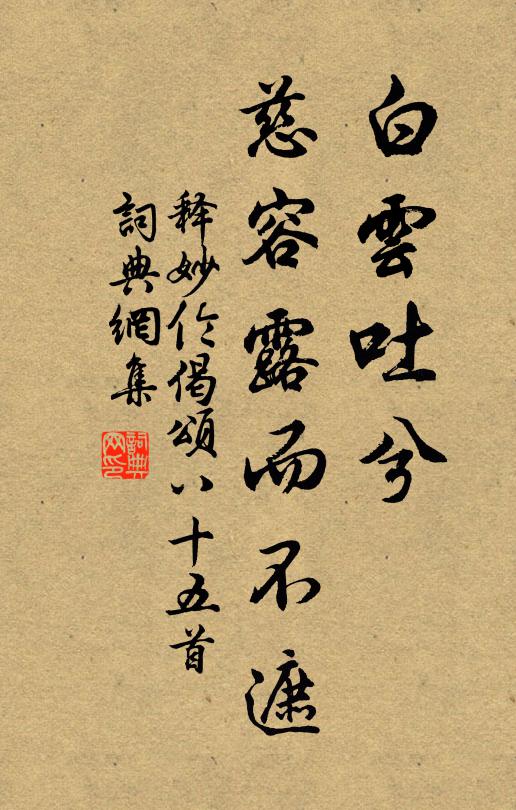 白雲吐兮
慈容露而不遮
释妙伦偈頌八十五首
詞典網集
詞典
网印